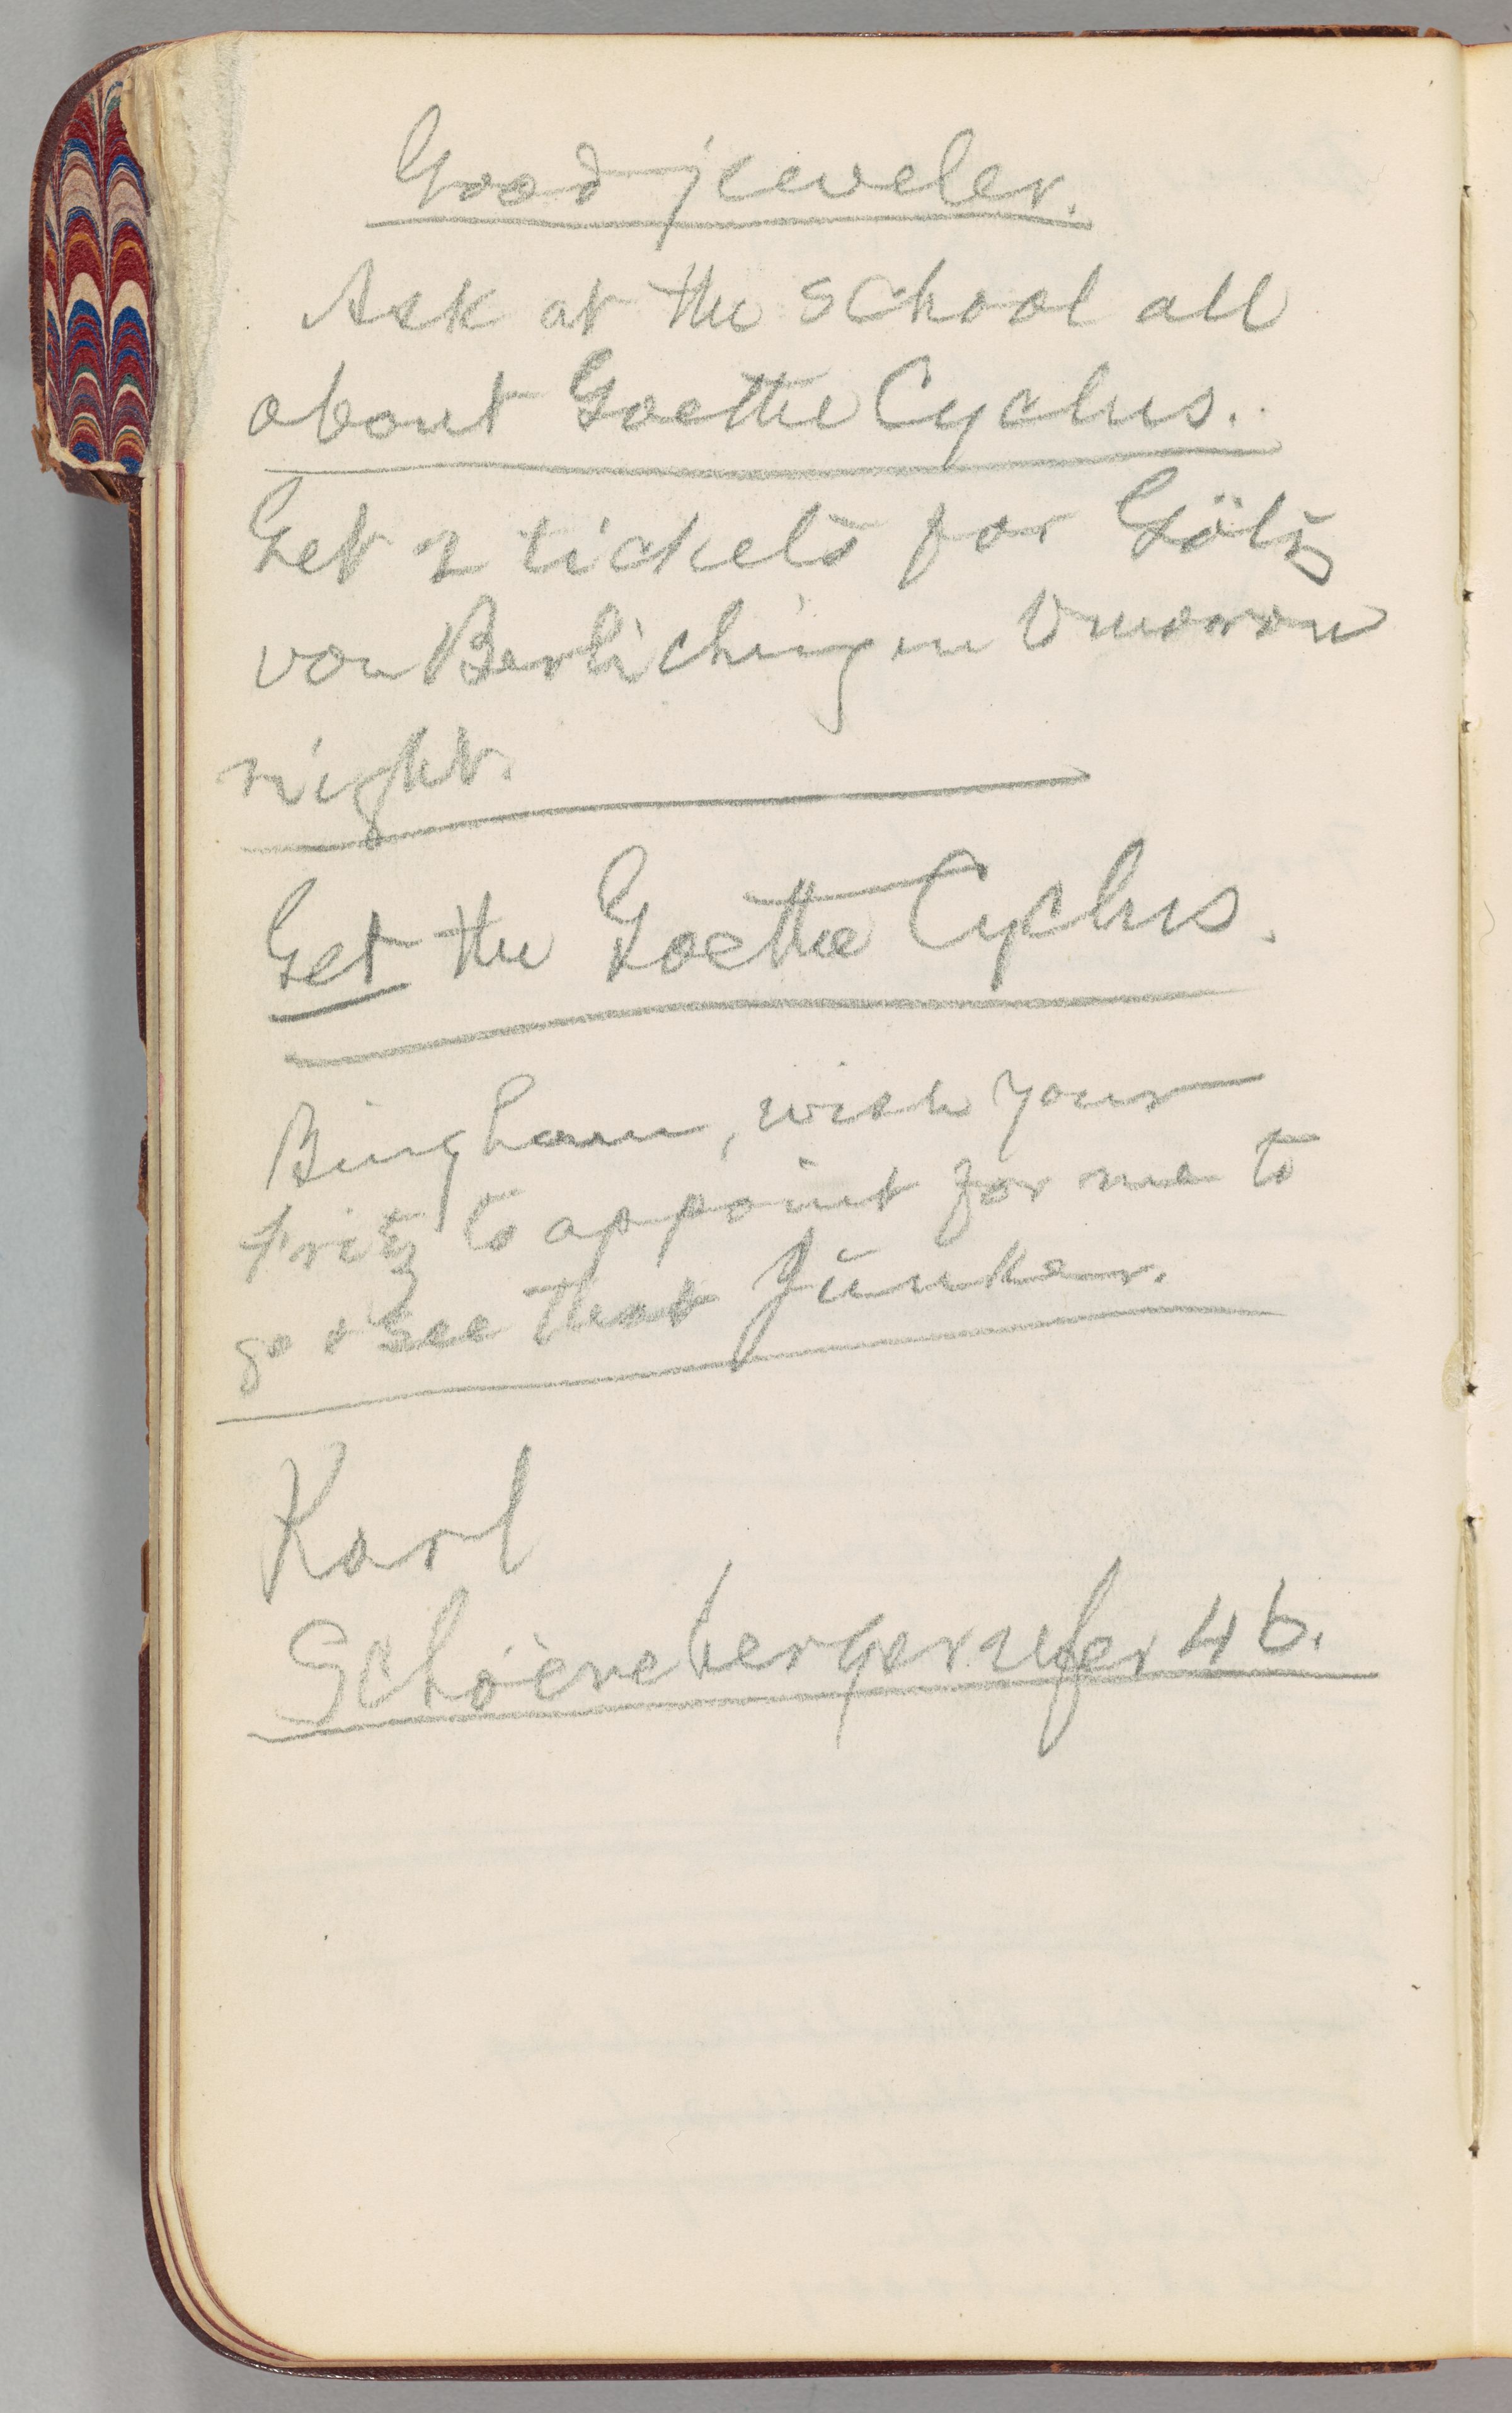 Good jeweler.
Ask at the school all
about Goethe Cyclus.
Get 2 tickets for Götz
von Berlichingen tomorrow
night.
Get the Goethe Cyclus.
Bingham, wish your
Fritz to appoint for me to
go & see that Junker.
Karl
Schoenebergerufer 46.